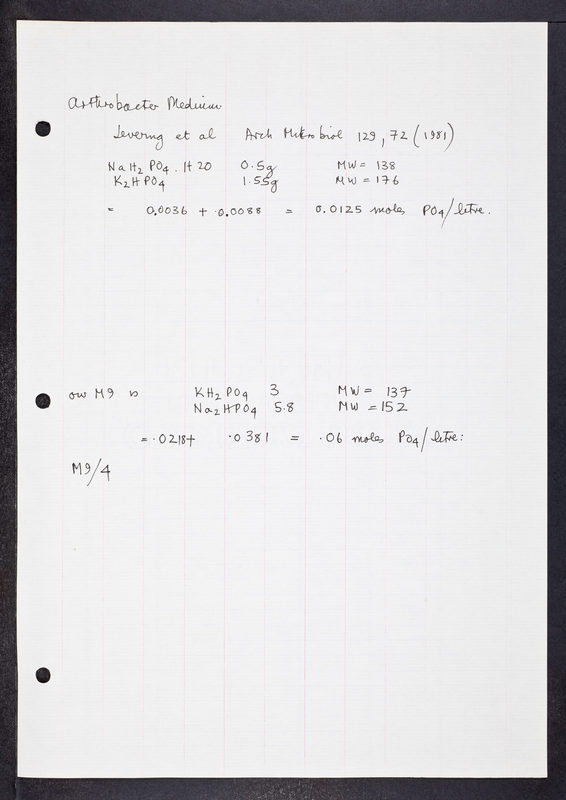 Arthrobacter Medium
Levering et al Arch Mikrobiol 129, 72 (1981)
NaH2PO4.H20 0.5g MW= 138
K2HPO4 1.55g MW=176
= 0.0036 + 0.0088 = 0.0125 moles PO4/litre.
our M9 is KH2PO4 3 MW= 137
Na2HPO4 5.8 MW=152
= .0218+ .0381 = .06 moles PO4/litre:
M9/4